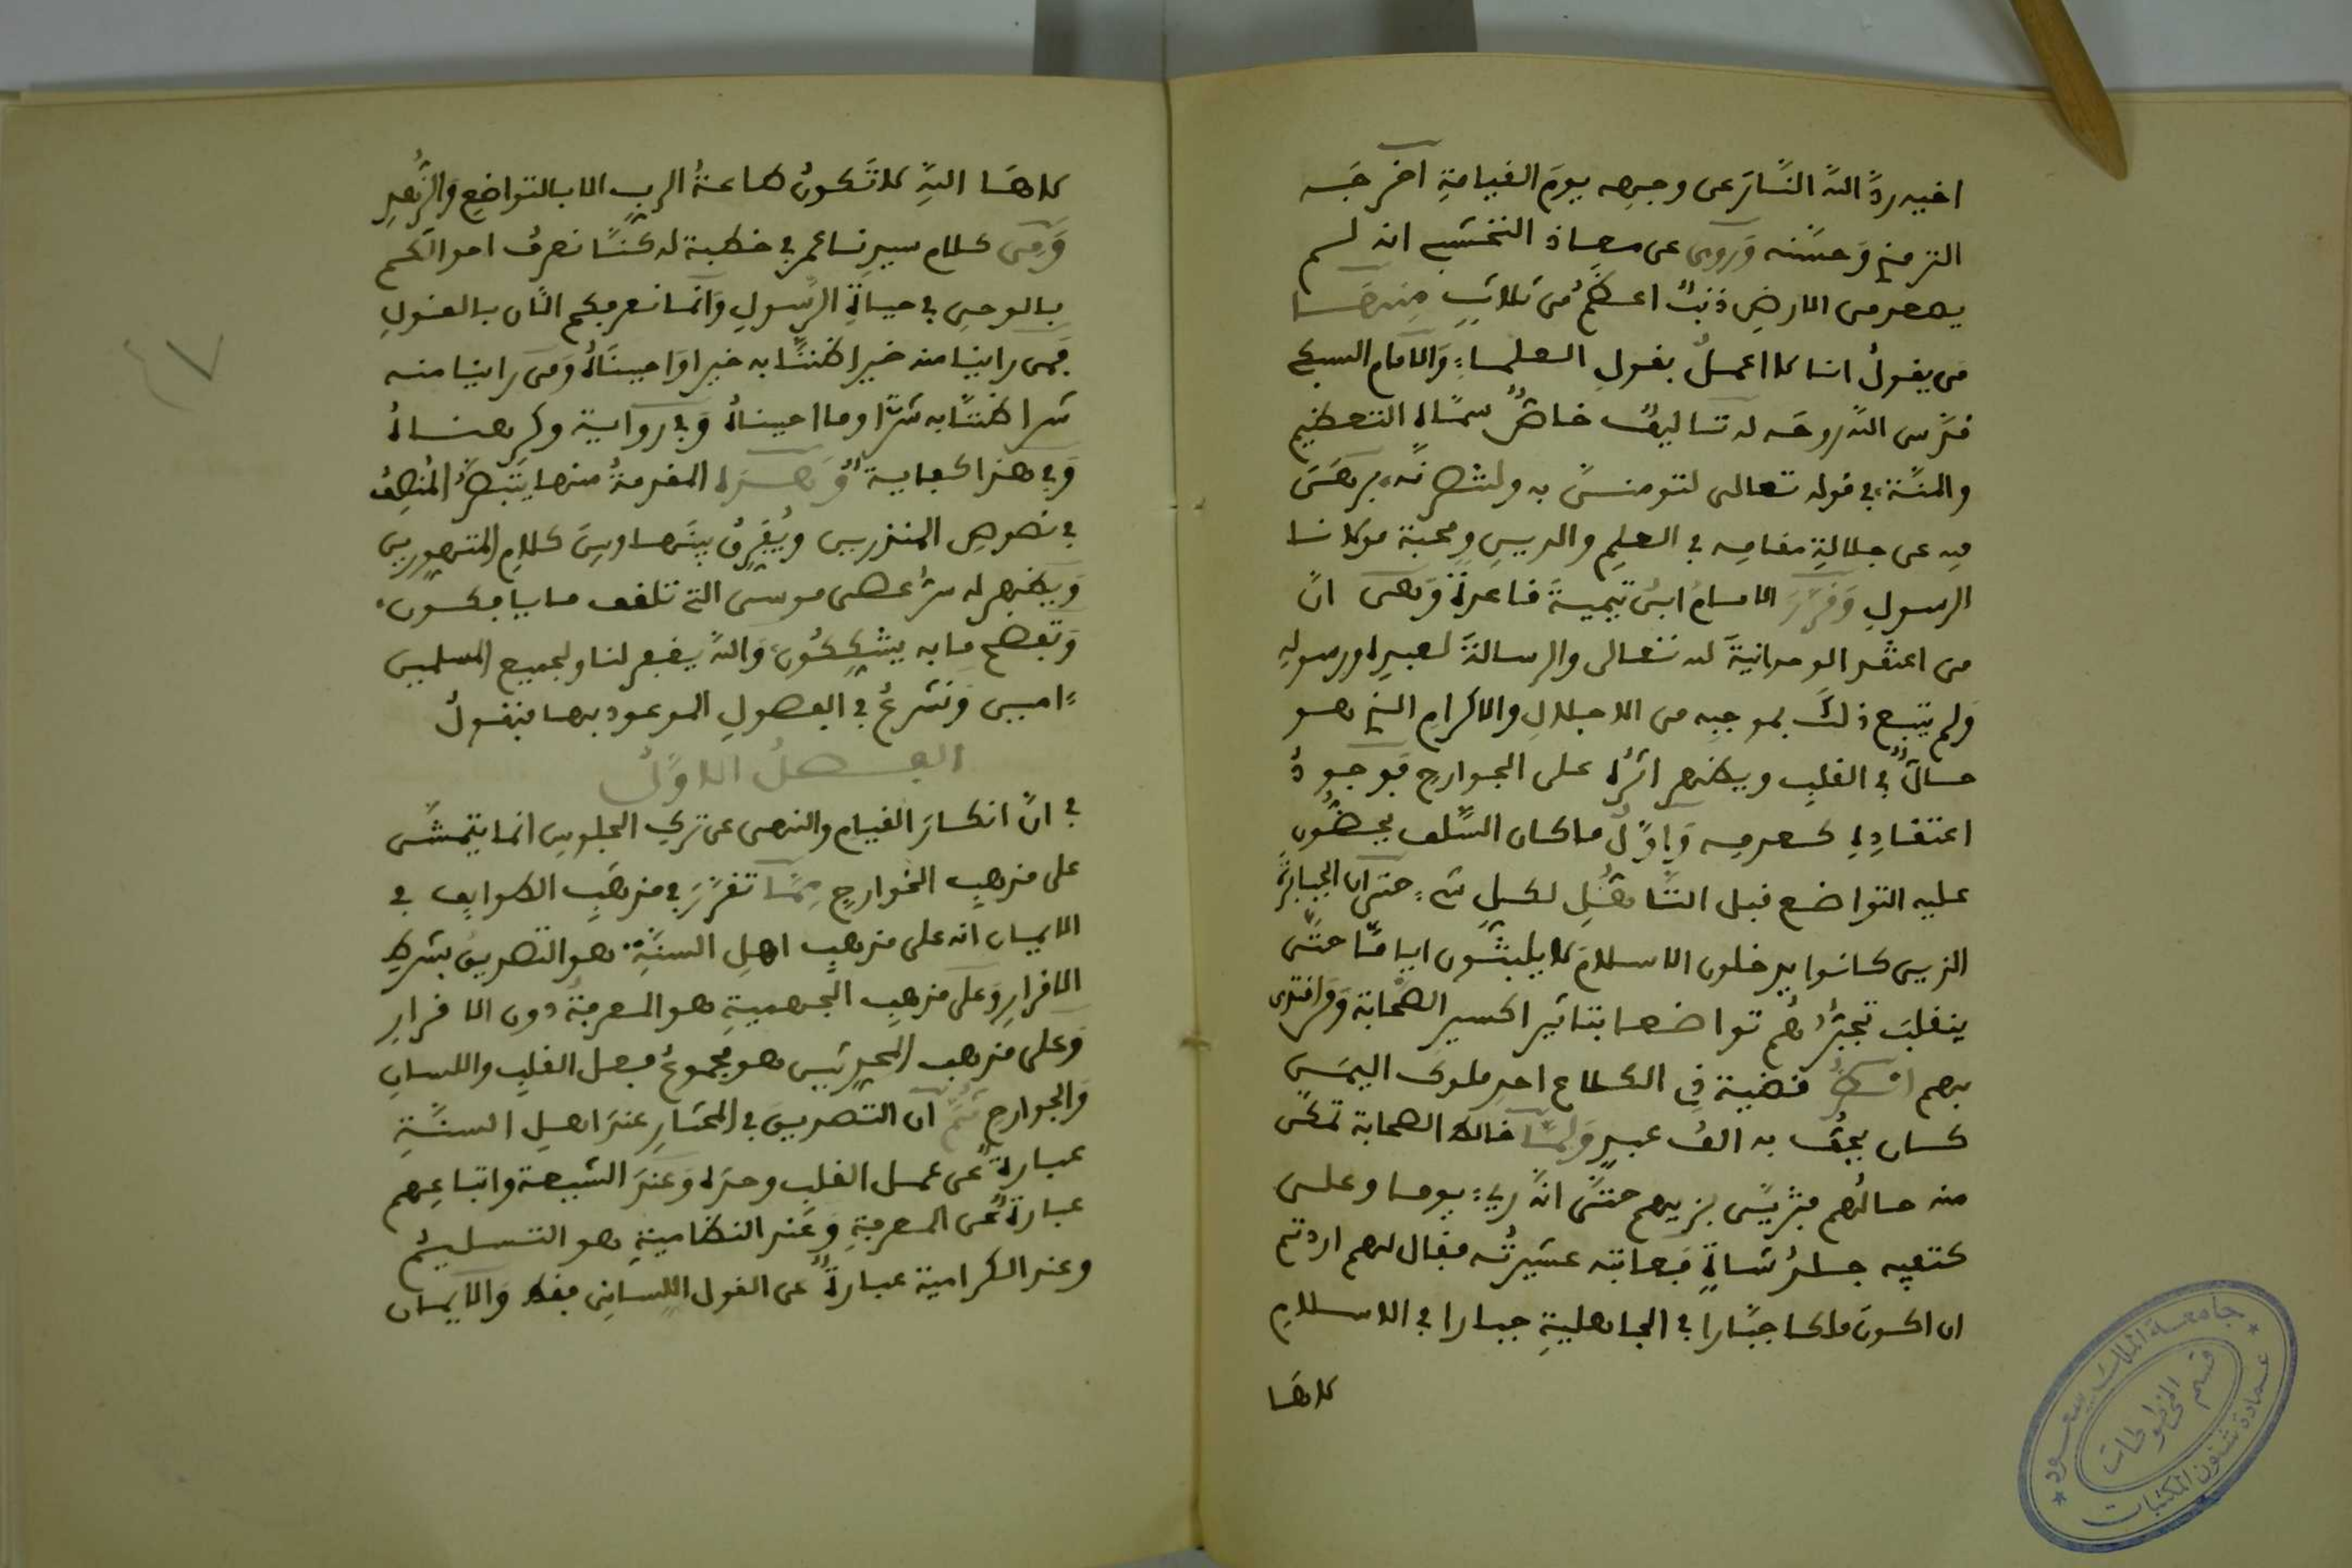 اخيه ردَّ اللهُ النَّارَ عن وجهه يومَ القيامةِ اخرجَه
الترمذي وَحسَّنه وَروى عن معاذ النخشبي انه لم
يصعد من الارضِ ذنبٌ اعظَمُ من ثلاثٍ منهَا
من يقولُ انا لا اعملُ بقولِ العلماءِ وَالامام السبكي
قدَّس اللهُ روحَه له تاليفٌ خاصٌّ سمَّاه التعظيم
والمنَّة في قوله تعالى لتومننَّ به ولتنصرنَّه برهَنَ
فيه عن جلالةِ مقامِه في العلمِ والدينِ ومحبة مولانا
الرسولِ وَقرَّرَ الامامُ ابنُ تيميةَ قاعدةً وَهى انَّ
من اعتقد الوحدانيةَ لله تعالى والرسالةَ لعبدِه ورسولِه
وَلم يتبع ذلكَ بموجبِه من الاجلالِ والاكرامِ الذي هو
حالٌ في القلبِ ويظهر اثرُه على الجوارحِ فوجودُ
اعتقادِه كعدمِه وَاوَّلُ ما كان السَّلف يحضُّون
عليه التواضع قبل التاهُّلِ لكلِ شيءٍ حتى ان الجبابرةَ
الذين كانوا يدخلون الاسلامَ لا يلبثون ايامًا حتَّى
ينقلبَ تجبّرُهم تواضعا بتاثير اكسير الصَّحابة وَ
بهم انظرْ قضيةَ ذي الكلاع احدِ ملوك اليمَن
كان يحُفُّ به الفُ عبدٍ وَلمَّا خالط الصحابة تمكَّن
منه حالُهم فتزيَّى بزيهم حتَّى انَّه رىءَ يوما وعلى
كتفِه جلدُ شاةٍ فعاتبته عشيرتُه فقال لهم اردتم
ان اكونَ ملكا جبَّارا في الجاهليةِ جبارا في الاسلامِ
لاهَا
لاهَا اللهِ لا تَكونُ طاعةُ الربِ الا بالتواضعِ وَالزُّهدِ
وَمن كلام سيدنا عمر في خطبة له كنَّا نعرفُ احوالَكم
بالوحي في حياةِ الرَّسولِ وَانما نعرفكم الان بالقولِ
فَمن راينا منه خيرا ظننَّا به خيرا وَاحببنَاهُ وَمن راينا منه
شرا ظننَّا به شرًّا وما احببناهُ وَفي رواية وكرهناهُ
وَفي هذا كفايةٌ وَهذه المقدمةُ منها يتبصَّرُ المُنصِفُ
في نصوصِ المنذرين ويُفرِّقُ بينَها وبينَ كلامِ المتهورين
وَيظهر له سرُّ عصى موسى التي تلقف ما يافكون
وَتفضح ما به يشكِّكُون وَاللهُ يغفر لنا ولجميع المسلمين
ءامين وَنَشرعُ في الفصولِ الموعود بها فنقولُ
الفصلُ الاوَّلُ
في انَّ انكارَ القيامِ والنهي عن تركِ الجلوسِ انما يتمشَّى
على مذهبِ الخوارجِ مِمَّا تقرَّرَ في مذهَبِ الطوايفِ في
الايمان انه على مذهبِ اهلِ السنَّةِ هو التصديقُ بشرطِ
الاقرارِ وَعلى مذهبِ الجهميةِ هو المعرفةُ دون الاقرارِ
وَعلى مذهبِ المحدثين هو مجموعُ فعل القلبِ واللسانِ
وَالجوارحِ ثُمَّ ان التصديقَ في المختارِ عندَ اهلِ السنَّةِ
عبارةٌ عن عملِ القلبِ وحدَه وَعندَ الشيعة واتباعِهم
عبارةٌ عن المعرفةِ وَعند النظاميةِ هو التسليمُ
وعند الكرامية عبارةٌ عن القول اللسانِي فقط وَالايمان
جامعة الملك سعود
قسم المخطوطات
عمادة شئون المكتبات